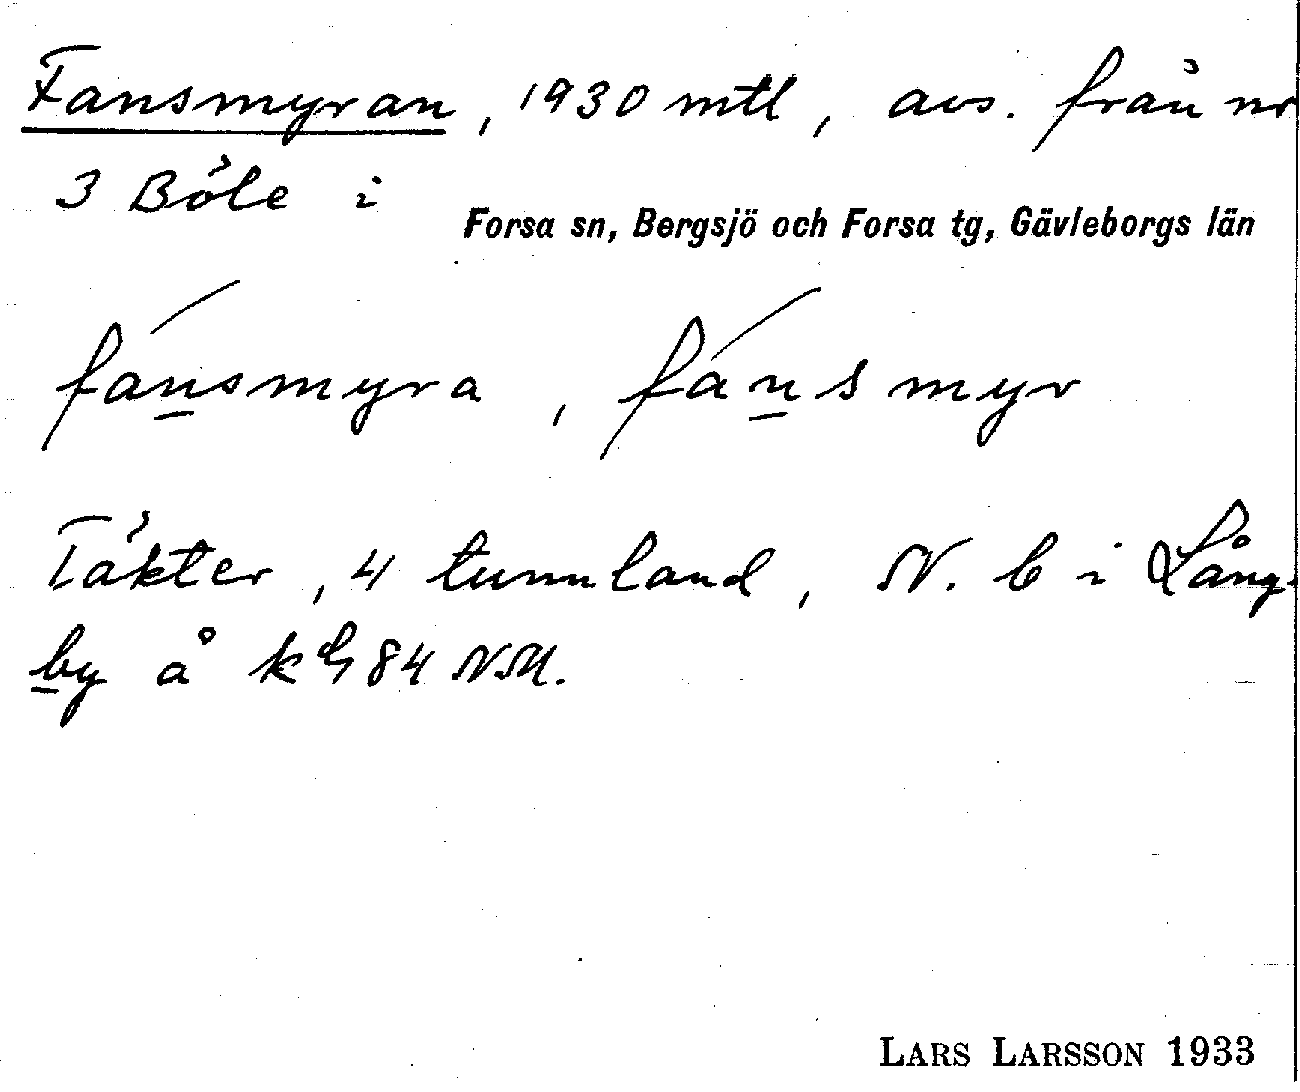 Fansmyran, 1930 mtl, avs. från nr
3 Böle i
Forsa sn, Bergsjö och Forsa tg, Gävleborgs län
fánsmyra, fánsmyr
Täkter, 4 tunnland, N. b i Lång-
by å 84 NM.
LARS LARSSON 1933